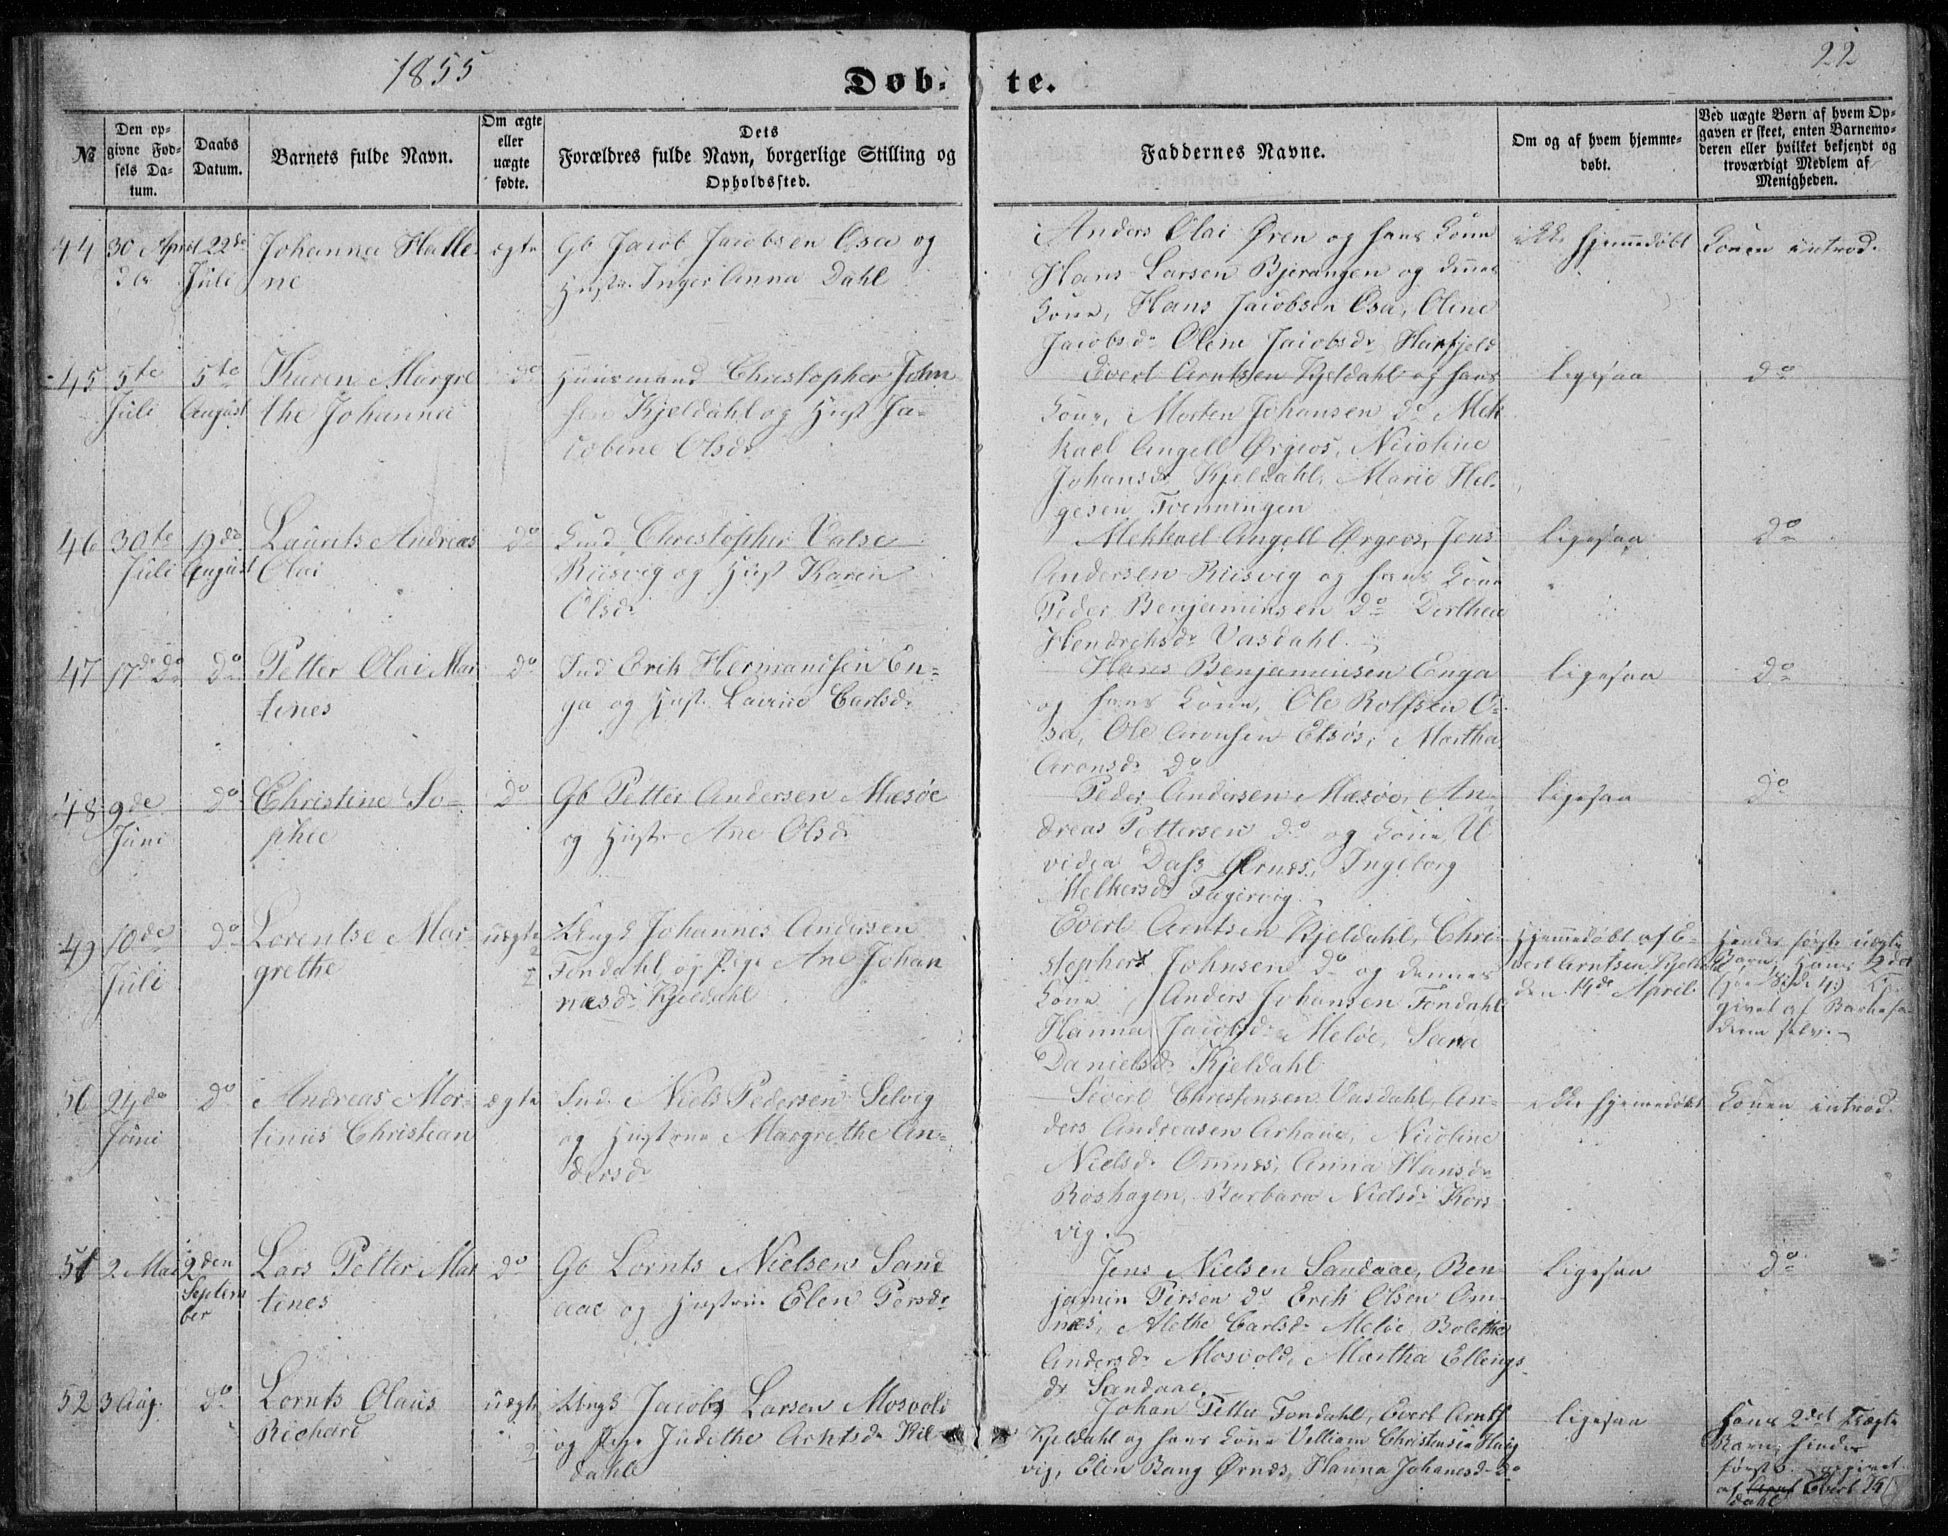 1855
22
Døb-
te.
№
Den op-
givne Fød-
sels Da-
tum.
Daabs
Datum.
Barnets fulde Navn.
Om ægte
eller
uægte
fødte.
Dets
Forældres fulde Navn, borgerlige Stilling og
Opholdssted.
Faddernes Navne.
Om og af hvem hjemme-
døbt.
Ved uægte Børn af hvem Op-
gaven er skeet, enten Barnemo-
deren eller hvilket bekjendt og
troværdigt Medlem af
Menigheden.
44
30 April
22de
Juli
Johanna Halle
ne
ægte
Gb Jacob Jacobsen Osa og
Hustr. Inger Anna Dahl
Anders Olai Øren og hans Kone
Hans Larsen Bjerangen og dennes
Kone, Hans Jacobsen Osa, Oline
Jacobsdr Oline Jacobsdr
ikke hjemmedøbt
Konen introd.
45
5te
Juli
5te
August
Karen Margre
the Johanna
do
Huusmand Christopher John
sen Kjeldahl og Hust Ja-
cobine Olsdr
Evert Arntsen Kjeldahl og hans
Kone, Morten Johansen do Mek
kael Angell Ørgeos, Nicoline
Johansdr Kjeldahl, Marie Hel-
gesen Tvenningen
ligesaa
do
46
30te
Juli
19de
August
Laurits Andreas
Olai
do
Christopher Valse
Riisvig og Hust Karen
Olsdr
Mekkael Angell Ørgeos, Jens
Andersen Riisvig og hans Kone
Peder Benjaminsen do Dorthea
Hendrichsdr Vasdahl.
ligesaa
do
47
17de do
do
Petter Olai Mar
tines
do
Ind Erik Hermandsen En-
ga og Hust. Lavine Carlsdr
Hans Benjaminsen Enga
og hans Kone, Ole Rolfsen O-
sa, Ole Aronsen Elsøs, Martha
Aronsdr do
ligesaa
do
48
9de
Juni
do
Christine So-
phie
do
Gb Petter Andersen Mæsøe
og Hustr Ane Olsdr
Peder Andersen Mæsøe, An-
dreas Pettersen do og Kone, U
videa Dass Ørnes, Ingeborg
Melkersdr Fagervig
ligesaa
do
49
10de
Juli
do
Lorentse Mar-
grethe
uægte
Ungk Johannes Andersen
Fondahl og Pige Ane Johan
næsdr Kjeldahl
Evert Arntsen Kjeldahl, Chri-
stopher Johnsen do og dennes
Kone Anders Johansen Fondahl
Hanna Jacobsdr Meløe, Sara
Danielsdr Kjeldahl
Hjemmedøbt af E-
vert Arntsen Kjeldahl
den 14de April
Hendes første uægte
Barn, Hans 2det
givet af Barnefa-
deren selv.
50
24de
Juni
do
Andreas Mor-
tinus Christian
ægte
Ind. Niels Pedersen Selvig
og Hustrue Margrethe An-
dersdr
Sivert Christensen Vasdahl, An-
ders Andreasen Arhaue, Nicoline
Nielsdr Omnes, Anna Hansdr
Roshagen, Barbara Nielsdr Kors
vig.
ikke hjemmedøbt
Konen introd.
51
2 Mai
2den
Septem
ber
Lars Petter Mar
tines
do
Gb Lornts Nielsen Sand
aae og Hustrue Elen Persdr
Jens Nielsen Sandaae, Ben-
jamin Persen do Erik Olsen Om-
næs, Alethe Carlsdr Meløe, Bolethe
Andersdr Mosvold, Martha Ellings
dr Sandaae.
ligesaa
do
52
3 Aug.
do
Lornts Olaus
Richard
uægte
Ungk Jacob Larsen Mosvold
og Pige Judithe Arntsdr Kil-
dahl
Johan Petter Fondahl, Evert Arntz
Kjeldahl og hans Kone Villiam Christensen Haug
vig, Elen Bang Ørnes, Hanna Johanesdr do
ligesaa
Hans 2det Uægte
Barn, hendes
første opgivet
af Evert
dahl